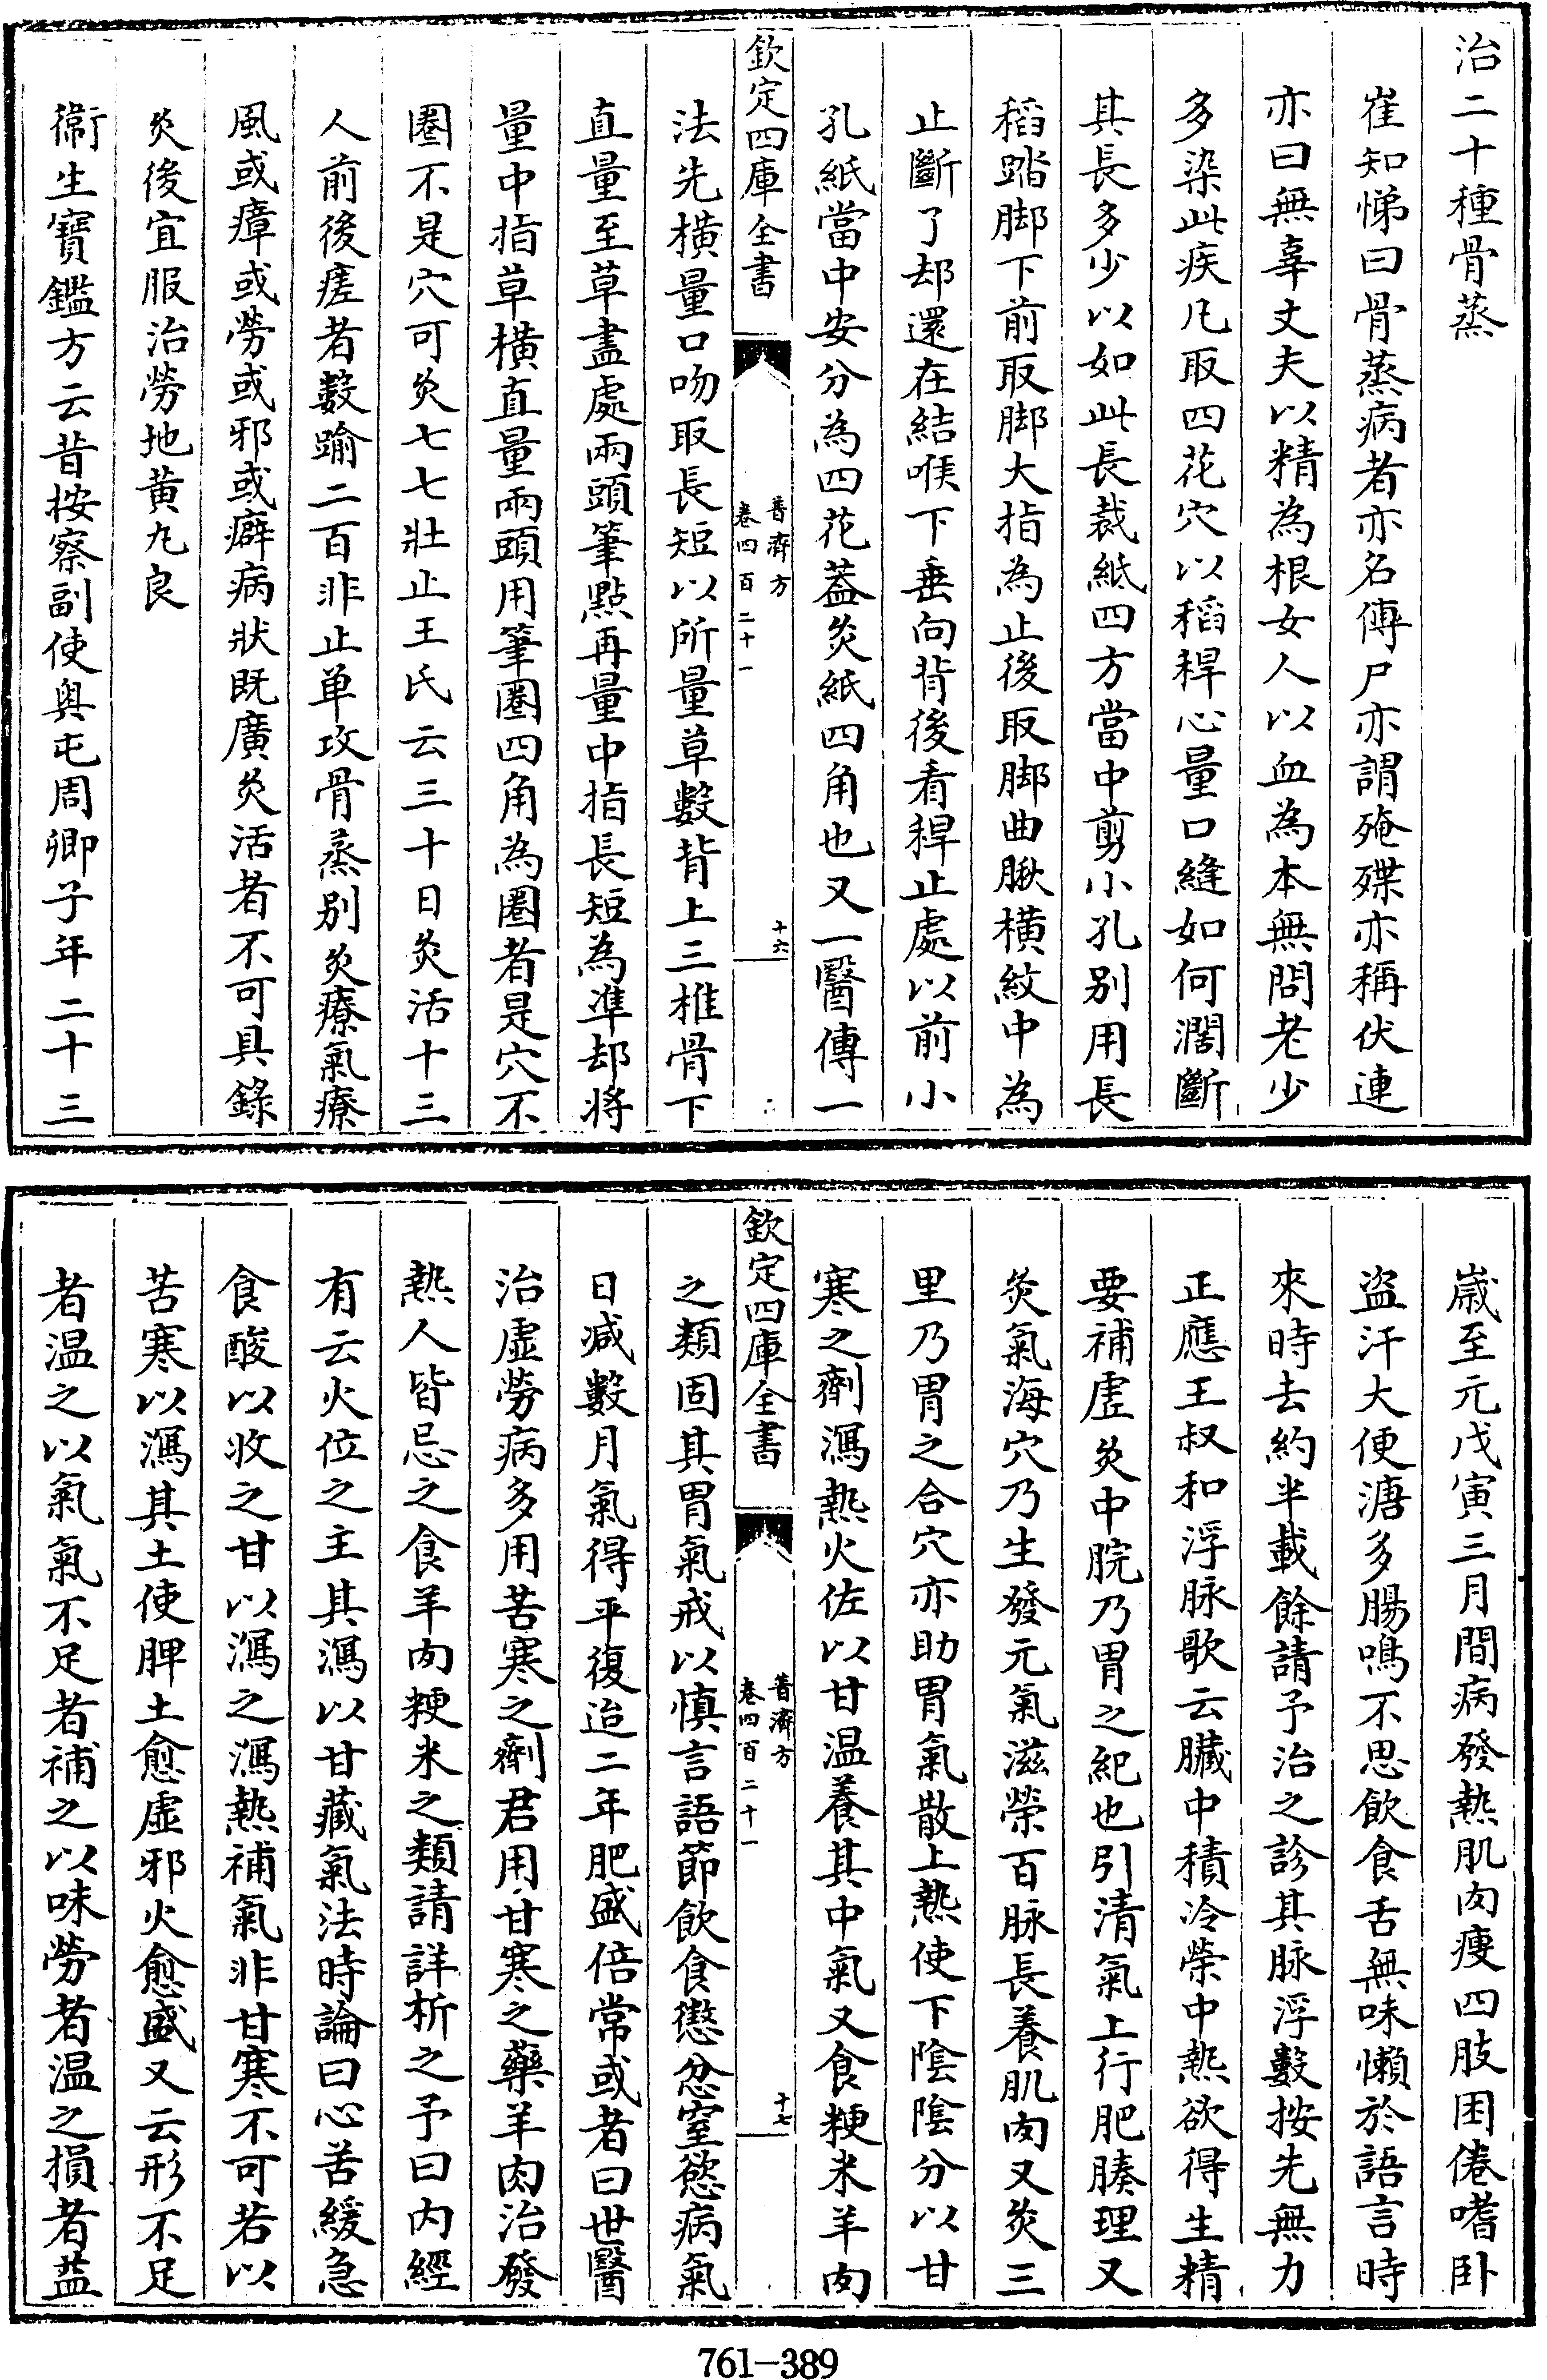 治二十種骨蒸
崔知悌曰骨蒸病者亦名傳尸亦謂殗殜亦稱伏連
亦曰無辜丈夫以精為根女人以血為本無問老少
多染此疾凡取四花穴以稻稈心量口縫如何濶斷
其長多少以如此長裁紙四方當中剪小孔别用長
稻踏脚下前取脚大指為止後取脚曲脉橫紋中為
止斷了却還在結喉下垂向背後看稈止處以前小
孔紙當中安分為四花葢灸紙四角也又一醫傳一
欽定四庫全書
普濟方
卷四百二十一
十六
法先橫量口吻取長短以所量草數背上三椎骨下
直量至草盡處兩頭筆點再量中指長短為準却將
量中指草橫直量兩頭用筆圈四角為圈者是穴不
圈不是穴可灸七七壯止王氏云三十日灸活十三
人前後瘥者數踰二百非止单攻骨蒸别灸療氣療
風或瘴或勞或邪或癖病狀既廣灸活者不可具錄
灸後宜服治勞地黄丸良
衛生寶鑑方云昔按察副使奥屯周卿子年二十三
歲至元戊寅三月間病發熱肌肉瘦四肢困倦嗜卧
盜汗大便溏多腸鳴不思飲食舌無味懶於語言時
來時去約半載餘請予治之診其脉浮數按先無力
正應王叔和浮脉歌云臟中積冷榮中熱欲得生精
要補虛灸中脘乃胃之紀也引清氣上行肥腠理又
灸氣海穴乃生發元氣滋榮百脉長養肌肉又灸三
里乃胃之合穴亦助胃氣散上熱使下陰陰分以甘
寒之劑瀉熱火佐以甘温養其中氣又食粳米羊肉
欽定四庫全書
普濟方
卷四百二十一
十七
之類固其胃氣戒以慎言語節飲食懲忿窒慾病氣
日减數月氣得平復迨二年肥盛倍常或者曰世醫
治虛勞病多用苦寒之劑君用甘寒之藥羊肉治發
熱人皆忌之食羊肉粳米之類請詳析之予曰内經
有云火位之主其瀉以甘藏氣法時論曰心苦緩急
食酸以收之甘以瀉之瀉熱補氣非甘寒不可若以
苦寒以瀉其土使脾土愈虛邪火愈盛又云形不足
者温之以氣氣不足者補之以味勞者温之損者葢
761-389